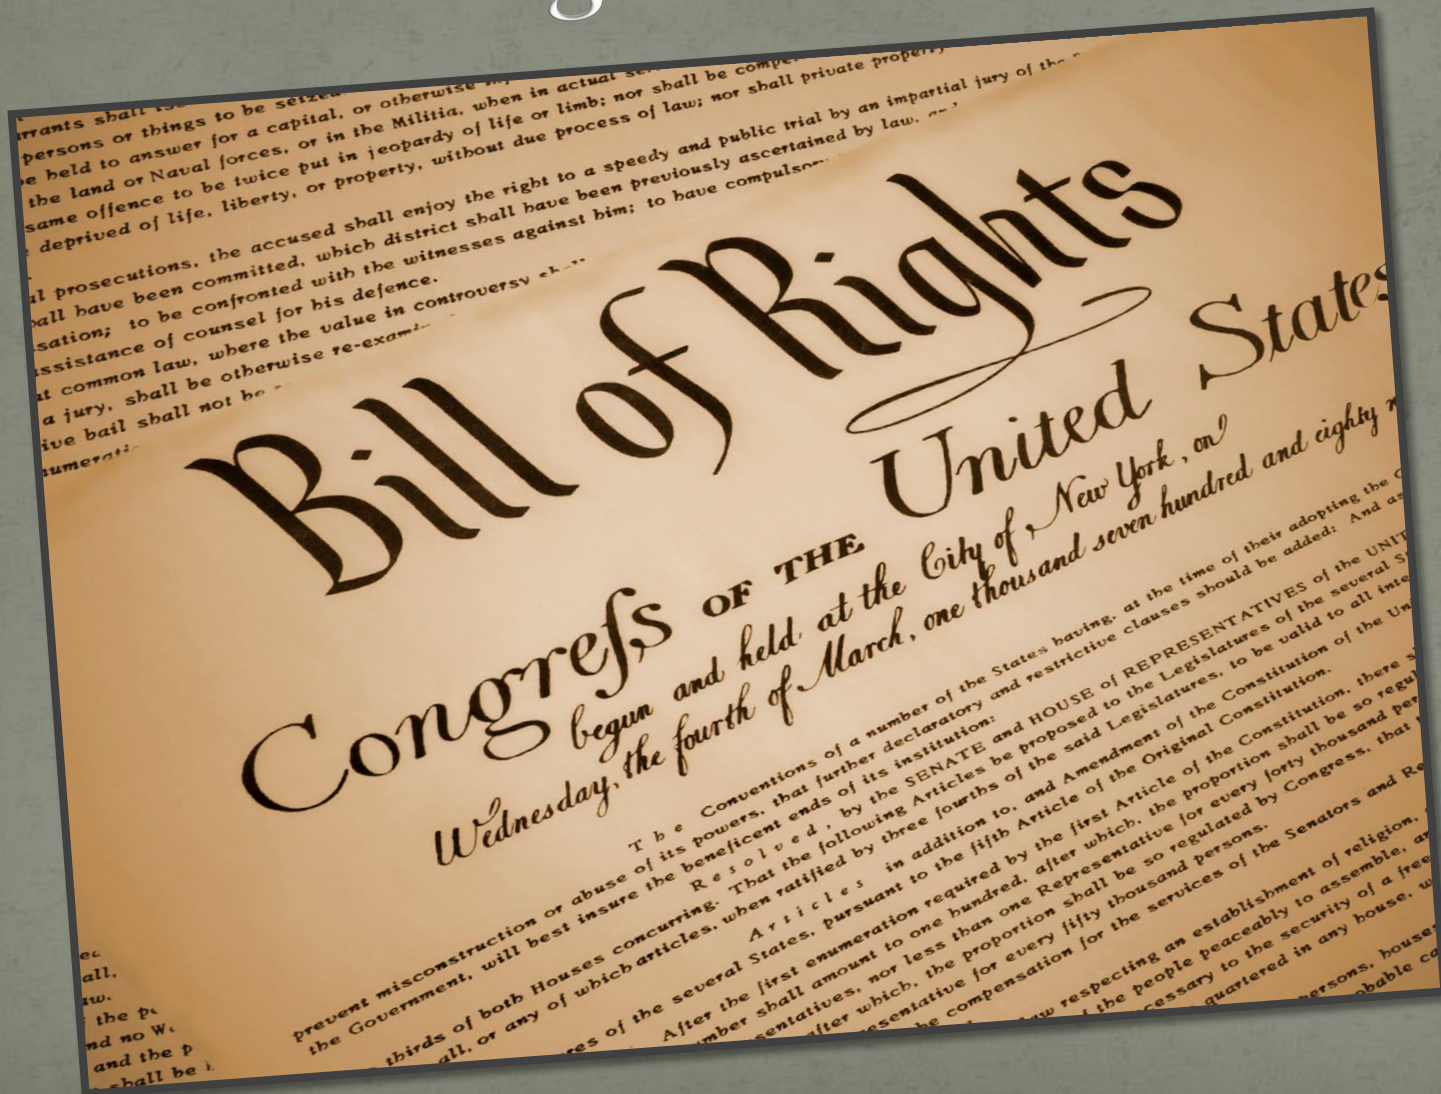 shall
persons or things to be seized
be held to answer for a capital, or otherwise
the land or Naval forces, or in the Militia, when in actual
same offence to be twice put in jeopardy of life or limb; nor shall be
deprived of life, liberty, or property, without due process of law; nor shall private property
prosecutions, the accused shall enjoy the right to a speedy and public trial by an impartial jury of the
have been committed, which district shall have been previously ascertained by law,
to be confronted with the witnesses against him; to have
of counsel for his defence.
common law, where the value in controversy
a jury, shall be otherwise
bail shall not be
Bill of Rights
Congreſs OF THE United States
begun and held at the City of New York, on
Wednesday, the fourth of March, one thousand seven hundred and eighty
The Conventions of a number of the States having, at the time of their adopting the
prevent misconstruction or abuse of its powers, that further declaratory and restrictive clauses should be added: And
the Government, will best insure the beneficent ends of its institution:
Resolved, by the SENATE and HOUSE of REPRESENTATIVES of the
thirds of both Houses concurring. That the following Articles be proposed to the Legislatures of the several
all, or any of which articles, when ratified by three fourths of the said Legislatures, to be valid to all
Articles in addition to, and Amendment of the Constitution of the
of the several States, pursuant to the fifth Article of the Original Constitution.
After the first enumeration required by the first Article of the Constitution, there
shall amount to one hundred, after which, the proportion shall be so
nor less than one Representative for every forty thousand
after which, the proportion shall be so regulated by Congress, that
for every fifty thousand persons.
compensation for the services of the Senators and
respecting an establishment of religion,
of the people peaceably to assemble,
to the security of a free
quartered in any house,
all,
the
no
and the
shall be